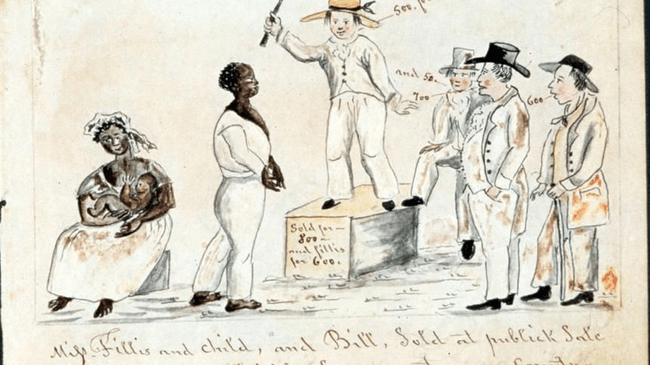 500. for
and 50.
700
600
Sold for—
800—
and Fillis
for 600.
Miss Fillis and child, and Bill, Sold at publick Sale